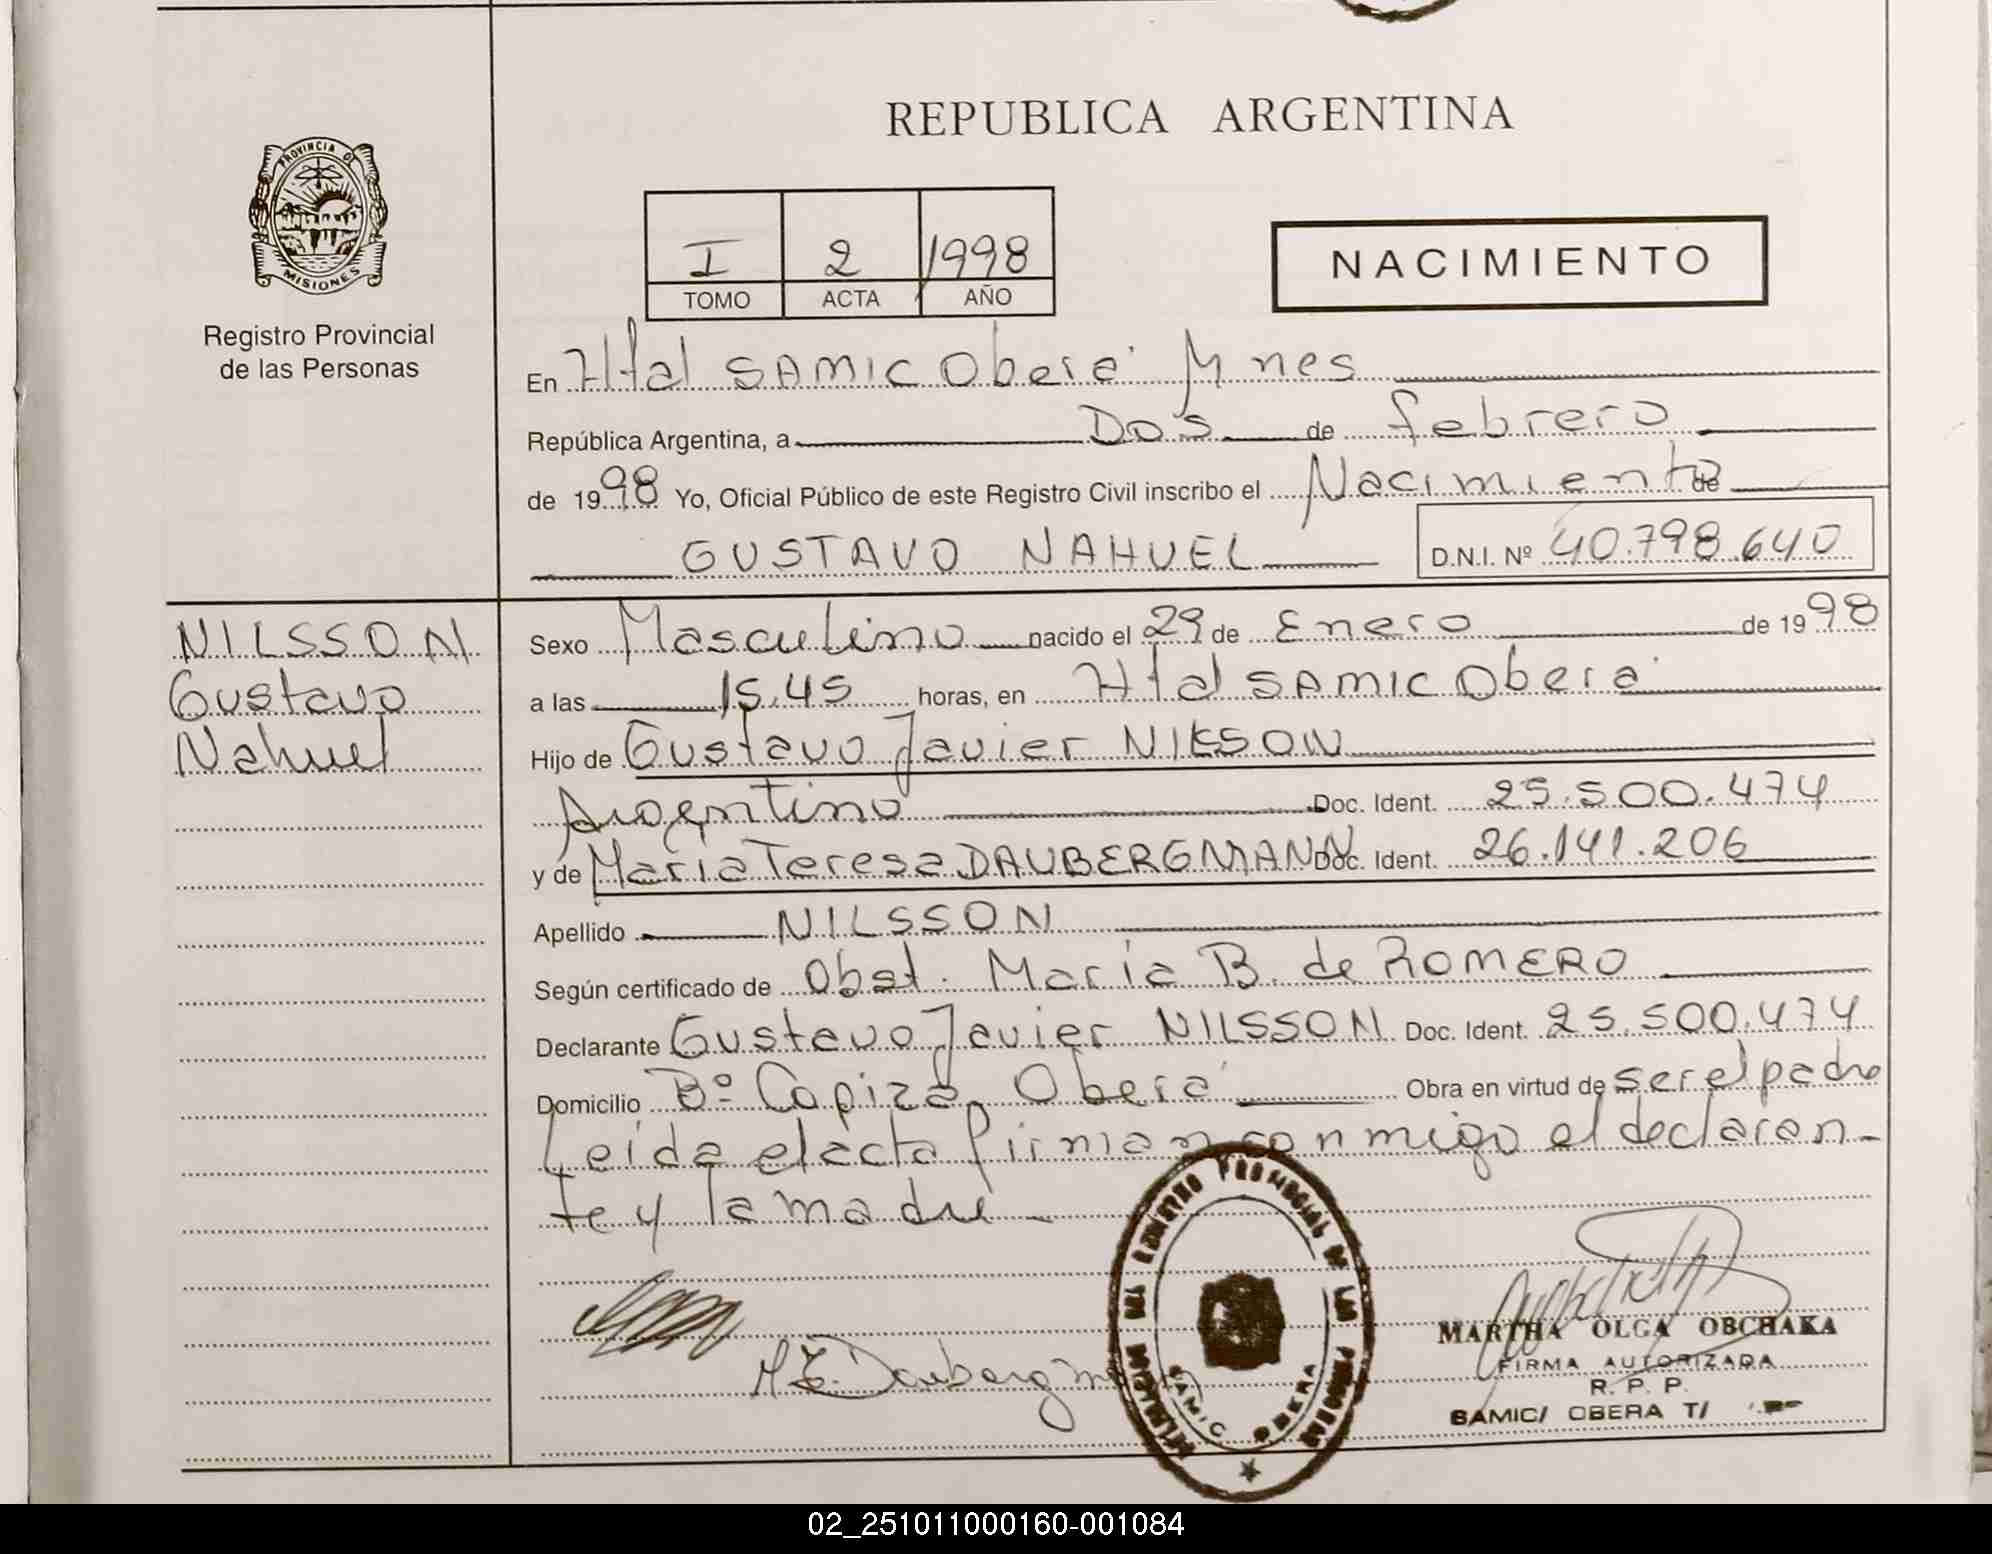 REPUBLICA ARGENTINA
PROVINCIA D
MISIONES
Registro Provincial
de las Personas
I 2 1998
TOMO ACTA AÑO
NACIMIENTO
En Htal SAMIC Oberá Mnes
República Argentina, a Dos de febrero
de 1998 Yo, Oficial Público de este Registro Civil inscribo el Nacimiento de
GUSTAVO NAHUEL D.N.I. Nº 40.798.640
NILSSON
Gustavo
Nahuel
Sexo Masculino nacido el 29 de Enero de 1998
a las 15.45 horas, en Htal SAMIC Oberá
Hijo de Gustavo Javier NILSSON
Argentino Doc. Ident. 25.500.474
y de María Teresa DAUBERGMANN Doc. Ident. 26.141.206
Apellido NILSSON
Según certificado de Obst. María B. de ROMERO
Declarante Gustavo Javier NILSSON Doc. Ident. 25.500.474
Domicilio Bº Copiza, Oberá Obra en virtud de ser el padre
Leída el acta firman conmigo el declaran-
te y la madre
REGISTRO PROVINCIAL DE LAS PERSONAS
SAMIC OBERA
M T. Daubergm
MARTHA OLGA OBCHAKA
FIRMA AUTORIZADA
R. P. P.
SAMIC/ OBERA T/
02_251011000160-001084